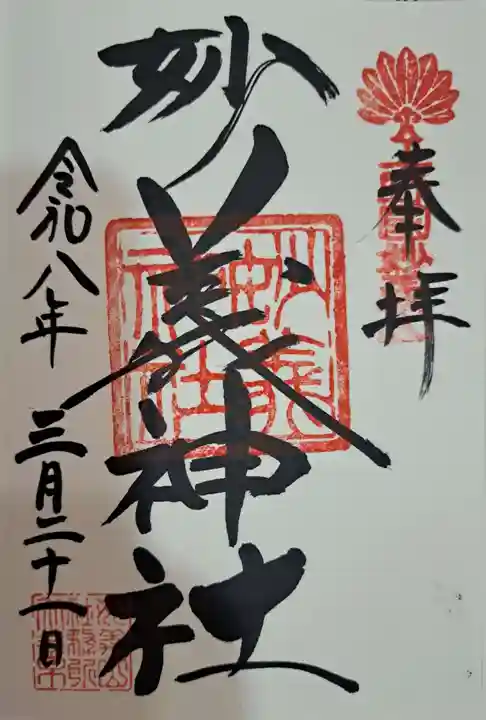 奉拝
妙義神社
令和八年三月二十一日